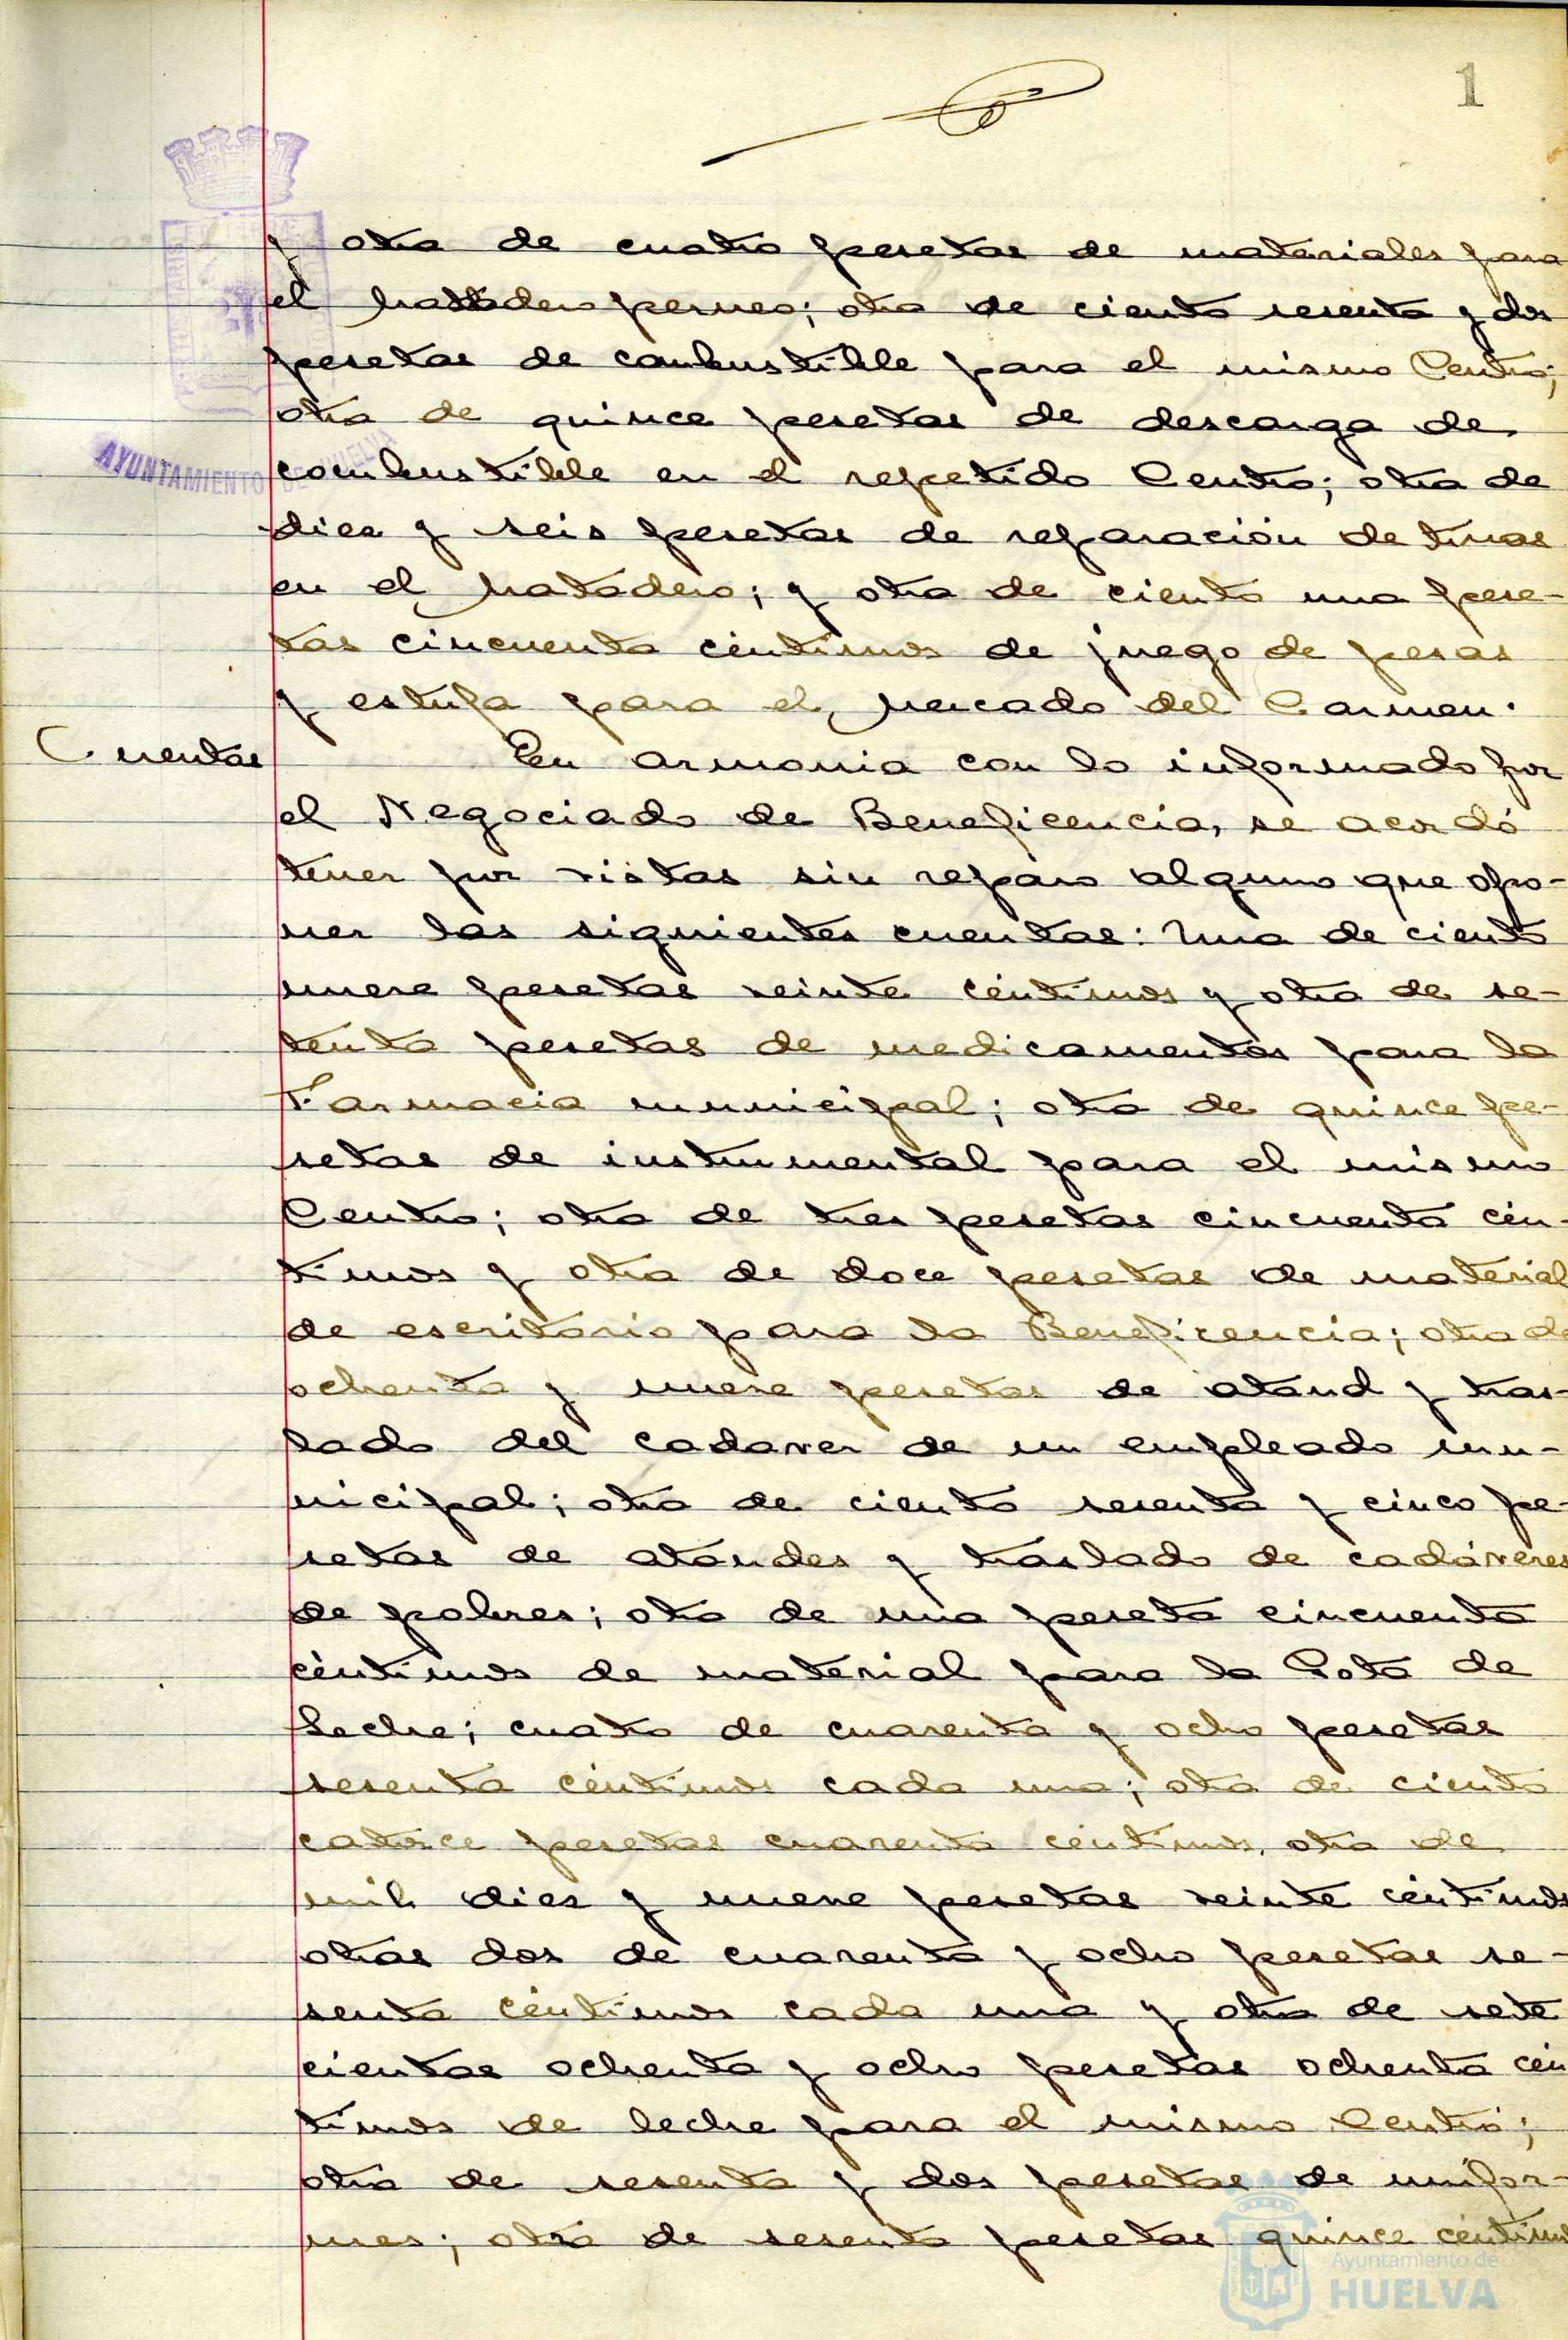 1
y otra de cuatro pesetas de materiales para
el Matadero ; otra de ciento sesenta y dos
pesetas de combustible para el mismo Centro;
otra de quince pesetas de descarga de
AYUNTAMIENTO DE HUELVA
combustible en el repetido Centro; otra de
diez y seis pesetas de reparación de tinas
en el Matadero; y otra de ciento una pese-
tas cincuenta céntimos de juego de pesas
y estufa para el Mercado del Carmen.
Cuentas
En armonia con lo informado por
el Negociado de Beneficencia, se acordó
tener por vistas sin reparo alguno que opo-
ner las siguientes cuentas: Una de ciento
nueve pesetas veinte céntimos y otra de se-
tenta pesetas de medicamentos para la
Farmacia municipal; otra de quince pe-
setas de instrumental para el mismo
Centro; otra de tres pesetas cincuenta cén-
timos y otra de doce pesetas de material
de escritorio para la Beneficencia; otra de
ochenta y nueve pesetas de ataud y tras-
lado del cadaver de un empleado mu-
nicipal; otra de ciento sesenta y cinco pe-
setas de ataudes y traslado de cadáveres
de pobres; otra de una peseta cincuenta
céntimos de material para la Gota de
Leche; cuatro de cuarenta y ocho pesetas
sesenta céntimos cada una; otra de ciento
catorce pesetas cuarenta céntimos, otra de
mil diez y nueve pesetas veinte céntimos
otras dos de cuarenta y ocho pesetas se-
senta céntimos cada una y otra de sete
cientas ochenta y ocho pesetas ochenta cén
timos de leche para el mismo Centro;
otra de sesenta y dos pesetas de unifor-
mes; otra de sesenta pesetas quince céntimos
Ayuntamiento de
HUELVA